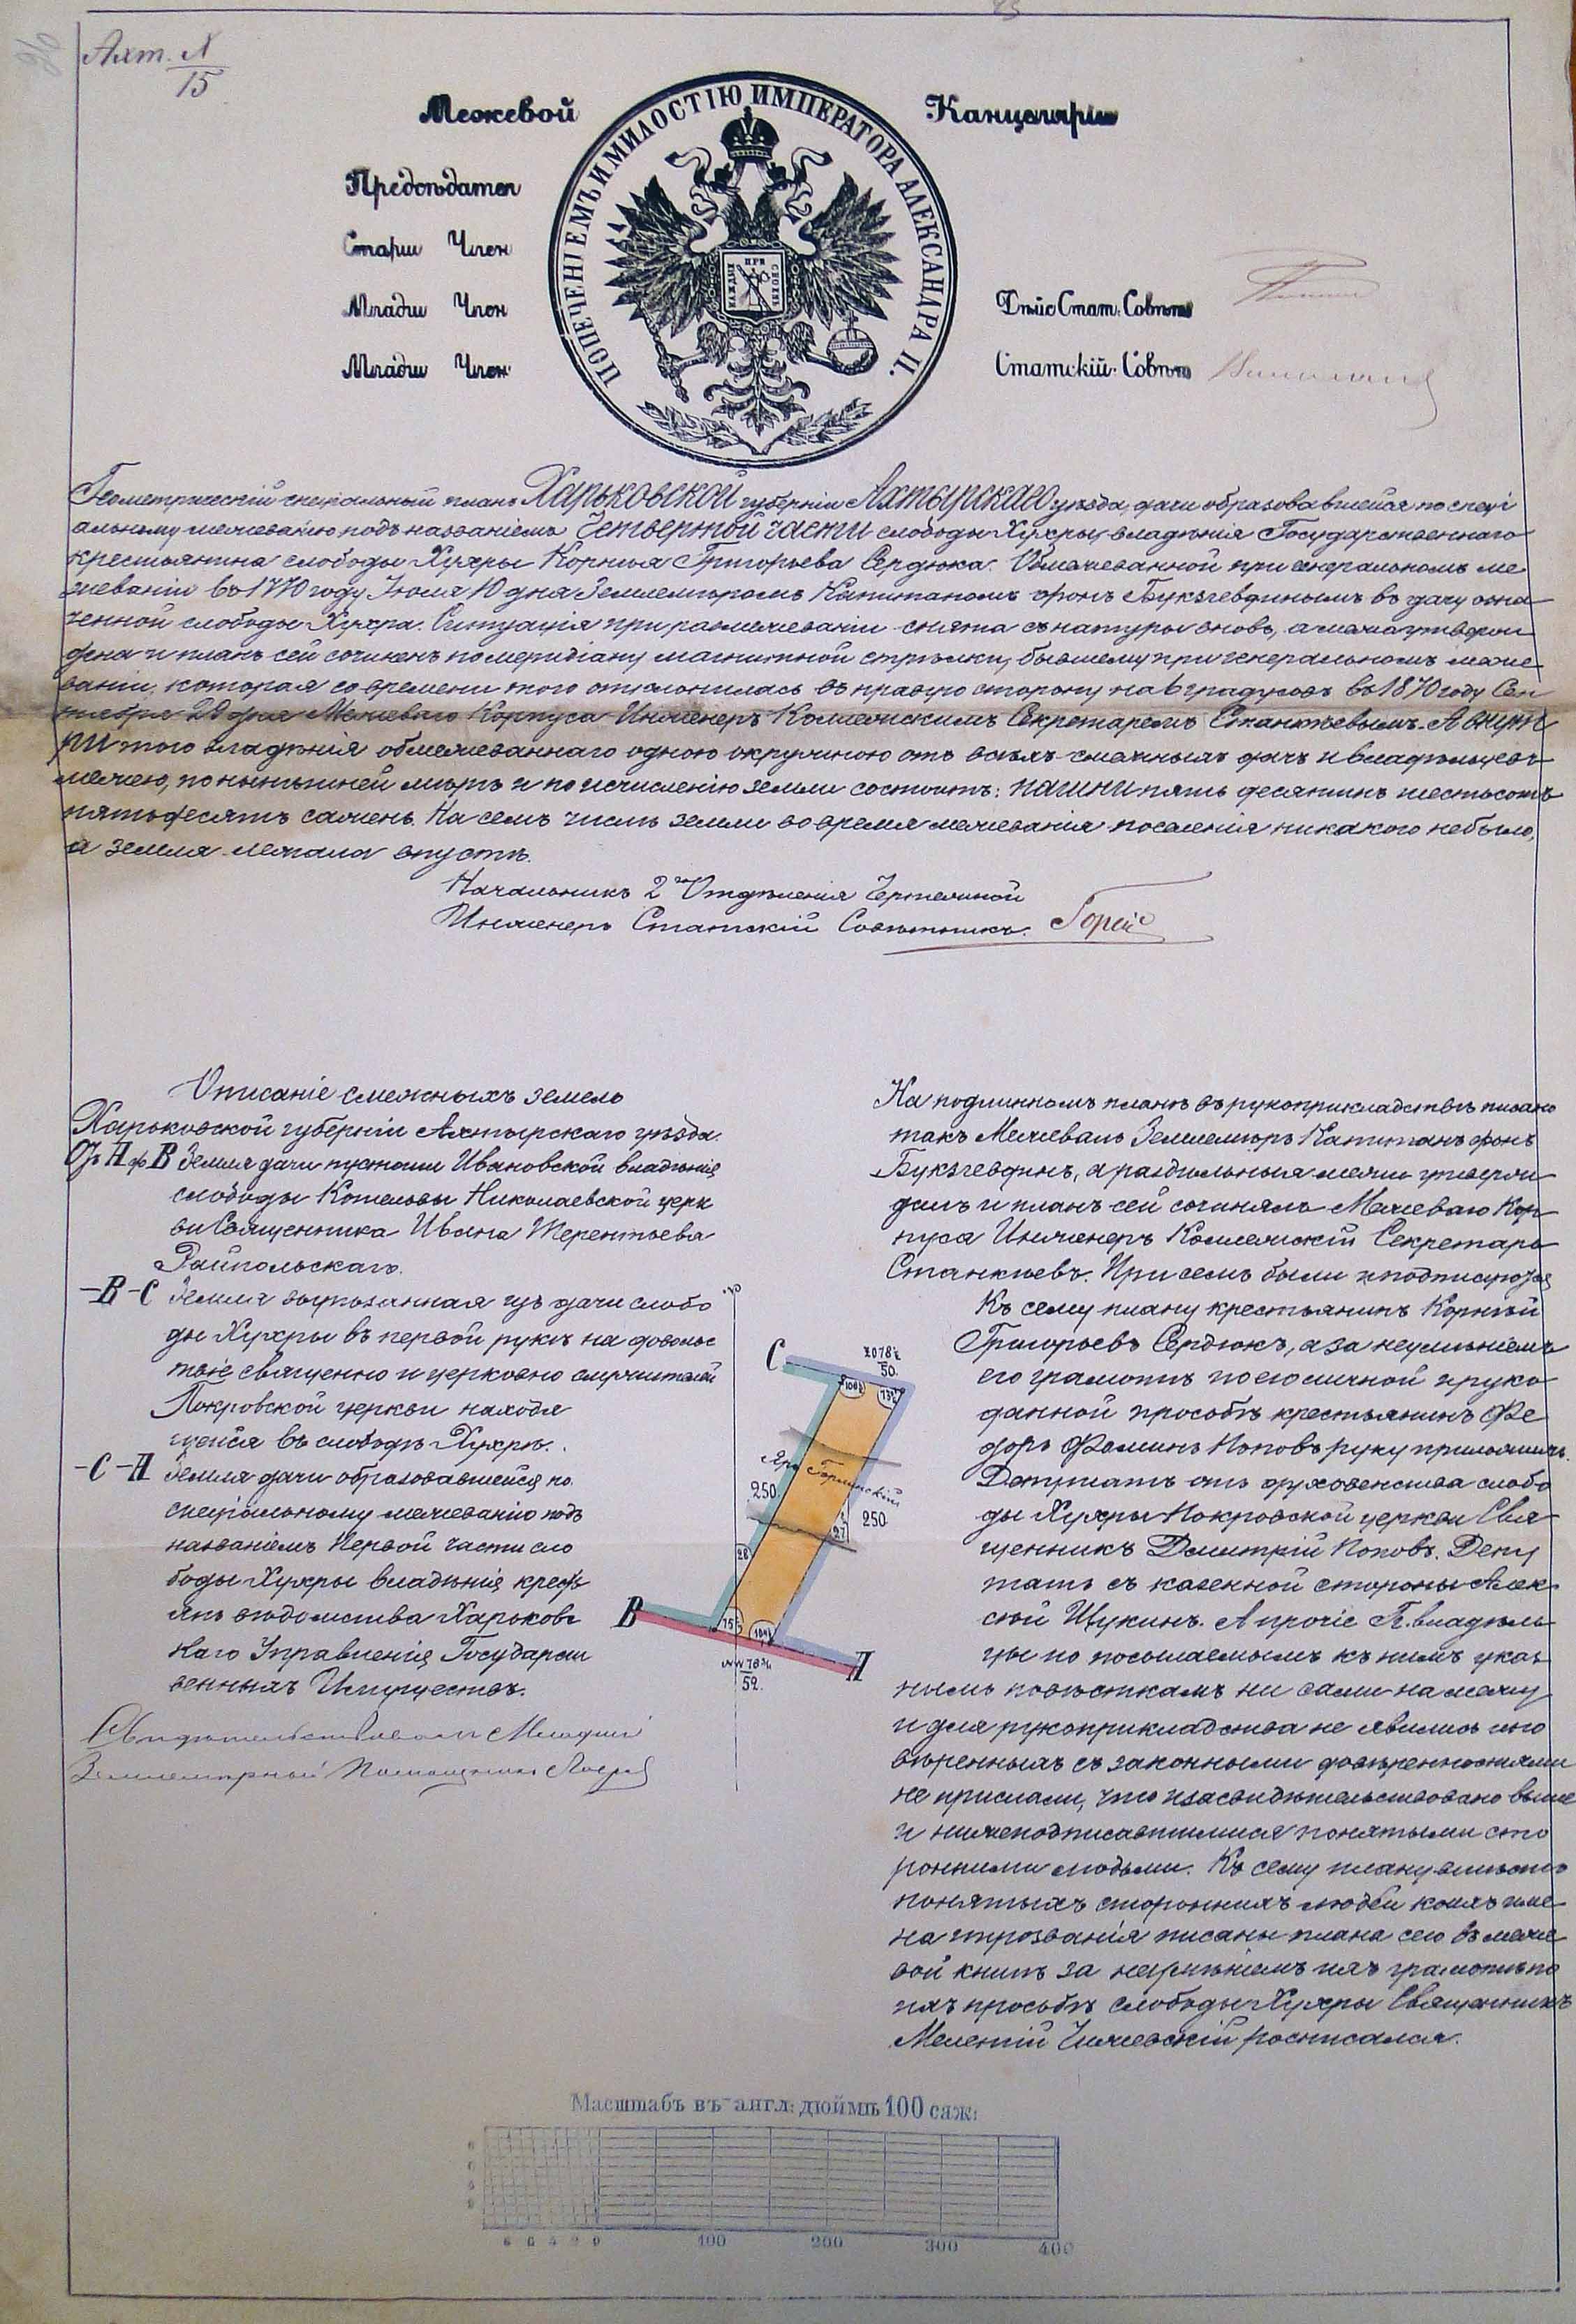 Ахт. N
15
Межевой Канцеляріи
ПОПЕЧЕНІЕМЪ И МИЛОСТІЮ ИМПЕРАТОРА АЛЕКСАНДРА II.
Предсѣдател
Старш Член
Младш Член Дѣйс Стат. Совѣтн
Младш Член Статскій Совѣтн
Геометрическій спеціальный планъ Харьковской губерніи Ахтырскаго уѣзда, дачи образовавшейся по спеці
альному межеванію подъ названіемъ Четвертой части слободы Хухры владѣнія Государственнаго
крестьянина слободы Хухры Корнія Григорьева Сердюка. Обмежеванной при генеральномъ ме
жеваніи въ 1770 году Іюля 10 дня Землемѣромъ Капитаномъ фонъ Буксгевдинымъ въ дачу озна
ченной слободы Хухра. Ситуація при размежеваніи снята съ натуры вновь, а межа утверж
дена и планъ сей сочиненъ по меридіану магнитной стрѣлки, бывшему при генеральномъ меже
ваніи, которая со времени того отклонилась въ правую сторону на 6 градусовъ въ 1870 году Сен
тября 20 дня Межеваго Корпуса Инженеръ Коллежскимъ Секретаремъ Станкѣевымъ. А внут
ри того владѣнія обмежеваннаго одною окружною отъ всѣхъ смежныхъ дачъ и владѣльцевъ
межею, по нынѣшней мѣрѣ и по исчисленію земли состоитъ: пашни пять десятинъ шестьсотъ
пятьдесятъ сажень. На семъ числѣ земли во время межеванія поселенія никакого небыло,
а земля лежала впустѣ.
Начальникъ 2го Отдѣленія Чертежной
Инженеръ Статскій Совѣтникъ.
Описаніе смежныхъ земель
Харьковской губерніи Ахтырскаго уѣзда.
Отъ А до В Земля дачи пустоши Ивановской владѣнія
слободы Котельвы Николаевской церк
ви Священника Ивана Терентьева
Райпольскаго.
–В–С Земля вырѣзанная изъ дачи слобо
ды Хухры въ первой рукѣ на доволь
ствіе священно и церковно служителей
Покровской церкви находя
щейся въ слободѣ Хухрѣ.
–С–А Земля дачи образовавшейся по
спеціальному межеванію подъ
названіемъ Первой части сло
боды Хухры владѣнія кресть
янъ вѣдомства Харьковс
каго Управленія Государст
венныхъ Имуществъ.
Свидѣтельствовалъ Младшій
Землемѣрный Помощникъ
С
50.
Яръ
250
250
28
27
В
А
NW 76¾
52.
На подлинномъ планѣ въ рукоприкладствѣ писано
такъ Межевалъ Землемѣръ Капитанъ фонъ
Буксгевдинъ, а раздѣльныя межи утверж
далъ и планъ сей сочинялъ Межеваго Кор
пуса Инженеръ Коллежскій Секретарь
Станкѣевъ. При семъ были и подписуюся
Къ сему плану крестьянинъ Корнѣй
Григорьевъ Сердюкъ, а за неумѣніемъ
его грамотѣ по его личной и руко
данной прособѣ крестьянинъ Фе
доръ Фоминъ Поповъ руку приложилъ.
Депутатъ отъ духовенства слобо
ды Хухры Покровской церкви Свя
щенникъ Дмитрій Поповъ. Депу
татъ съ казенной стороны Алек
сѣй Щукинъ. А прочіе Гг. владѣль
цы по посылаемымъ къ нимъ указ
нымъ повѣсткамъ ни сами на межу
и для рукоприкладства не явились и по
вѣренныхъ съ законными довѣренностями
не прислали, что и засвидѣтельствовано выше
и нижеподписавшимися понятыми сто
ронними людьми. Къ сему плану вмѣсто
понятыхъ стороннихъ людей коихъ име
на и прозванія писаны плана сего въ меже
вой книгѣ за неумѣніемъ ихъ грамотѣ по
ихъ просьбѣ слободы Хухры Священникъ
росписался.
Масштабъ въ англ: дюймѣ 100 саж:
8 6 4 2 0 100 200 300 400